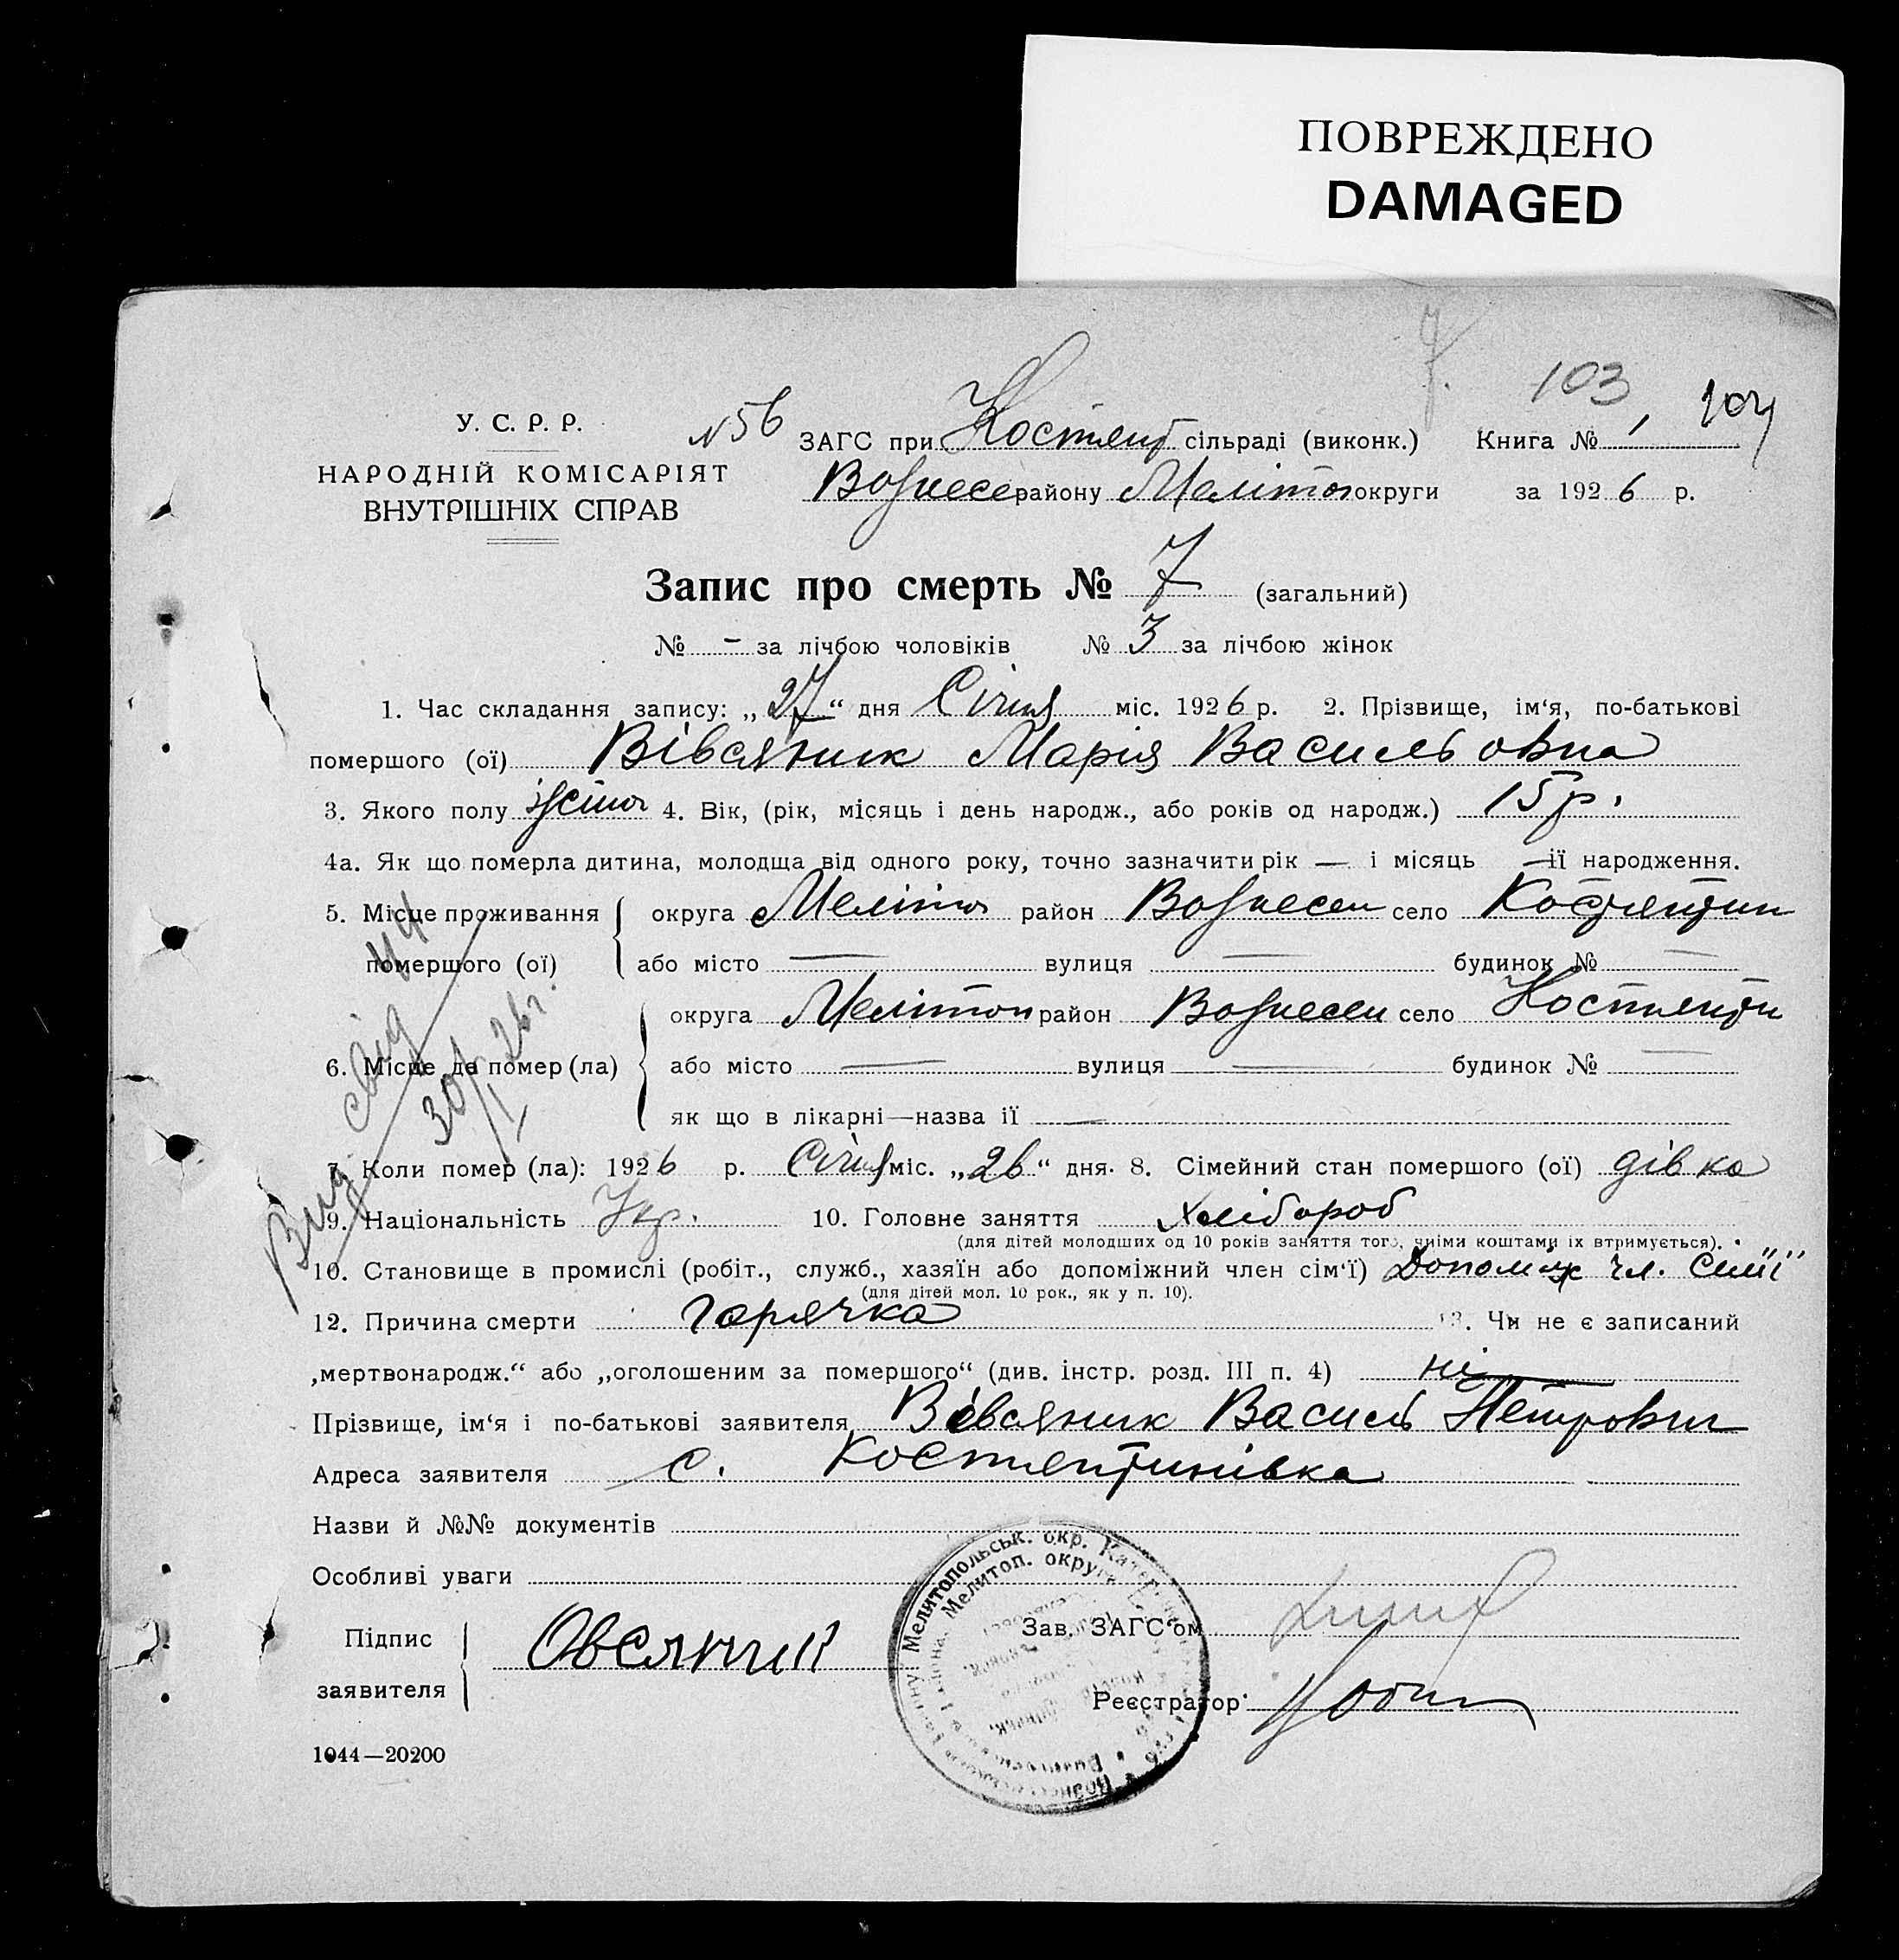 ПОВРЕЖДЕНО
DAMAGED
7.
103 104
У. С. Р. Р.
НАРОДНІЙ КОМІСАРІЯТ
ВНУТРІШНІХ СПРАВ
№56 ЗАГС при Костянт сільраді (виконк.) Книга № 1
Вознесе району Меліто округи за 1926 р.
Запис про смерть № 7 (загальний)
№ - за лічбою чоловіків № 3 за лічбою жінок
1. Час складання запису: „27“ дня Січня міс. 1926 р. 2. Прізвище, ім‘я, по-батькові
помершого (ої) Вівсяник Марія Васильовна
3. Якого полу жіноч 4. Вік, (рік, місяць і день народж., або років од народж.) 15 р.
4а. Як що померла дитина, молодща від одного року, точно зазначити рік — і місяць — її народження.
5. Місце проживання помершого (ої) округа Меліто район Вознесен село Костянтин
або місто — вулиця — будинок № —
6. Місце де помер (ла) округа Мелітоп район Вознесен село Костянти
або місто — вулиця — будинок № —
як що в лікарні—назва її —
7. Коли помер (ла): 1926 р. Січня міс. „26“ дня. 8. Сімейний стан помершого (ої) дівка
9. Національність Укр. 10. Головне заняття хлібороб
(для дітей молодших од 10 років заняття того, чиїми коштами їх втримується).
10. Становище в промислі (робіт., служб., хазяїн або допоміжний член сім‘ї) Допоміж чл. сімї
(для дітей мол. 10 рок., як у п. 10).
12. Причина смерти горячка 13. Чи не є записаний
„мертвонародж.“ або „оголошеним за помершого“ (див. інстр. розд. III п. 4) ні
Прізвище, ім‘я і по-батькові заявителя Вівсяник Василь Петрович
Адреса заявителя с. Костянтинівка
Назви й №№ документів
Особливі уваги
Підпис заявителя Овсяник
Зав. ЗАГС‘ом
Реєстратор
1044—20200
Вид. свід 44
30/I 26 г.
Мелитопольськ. окр.
Мелитоп. округи